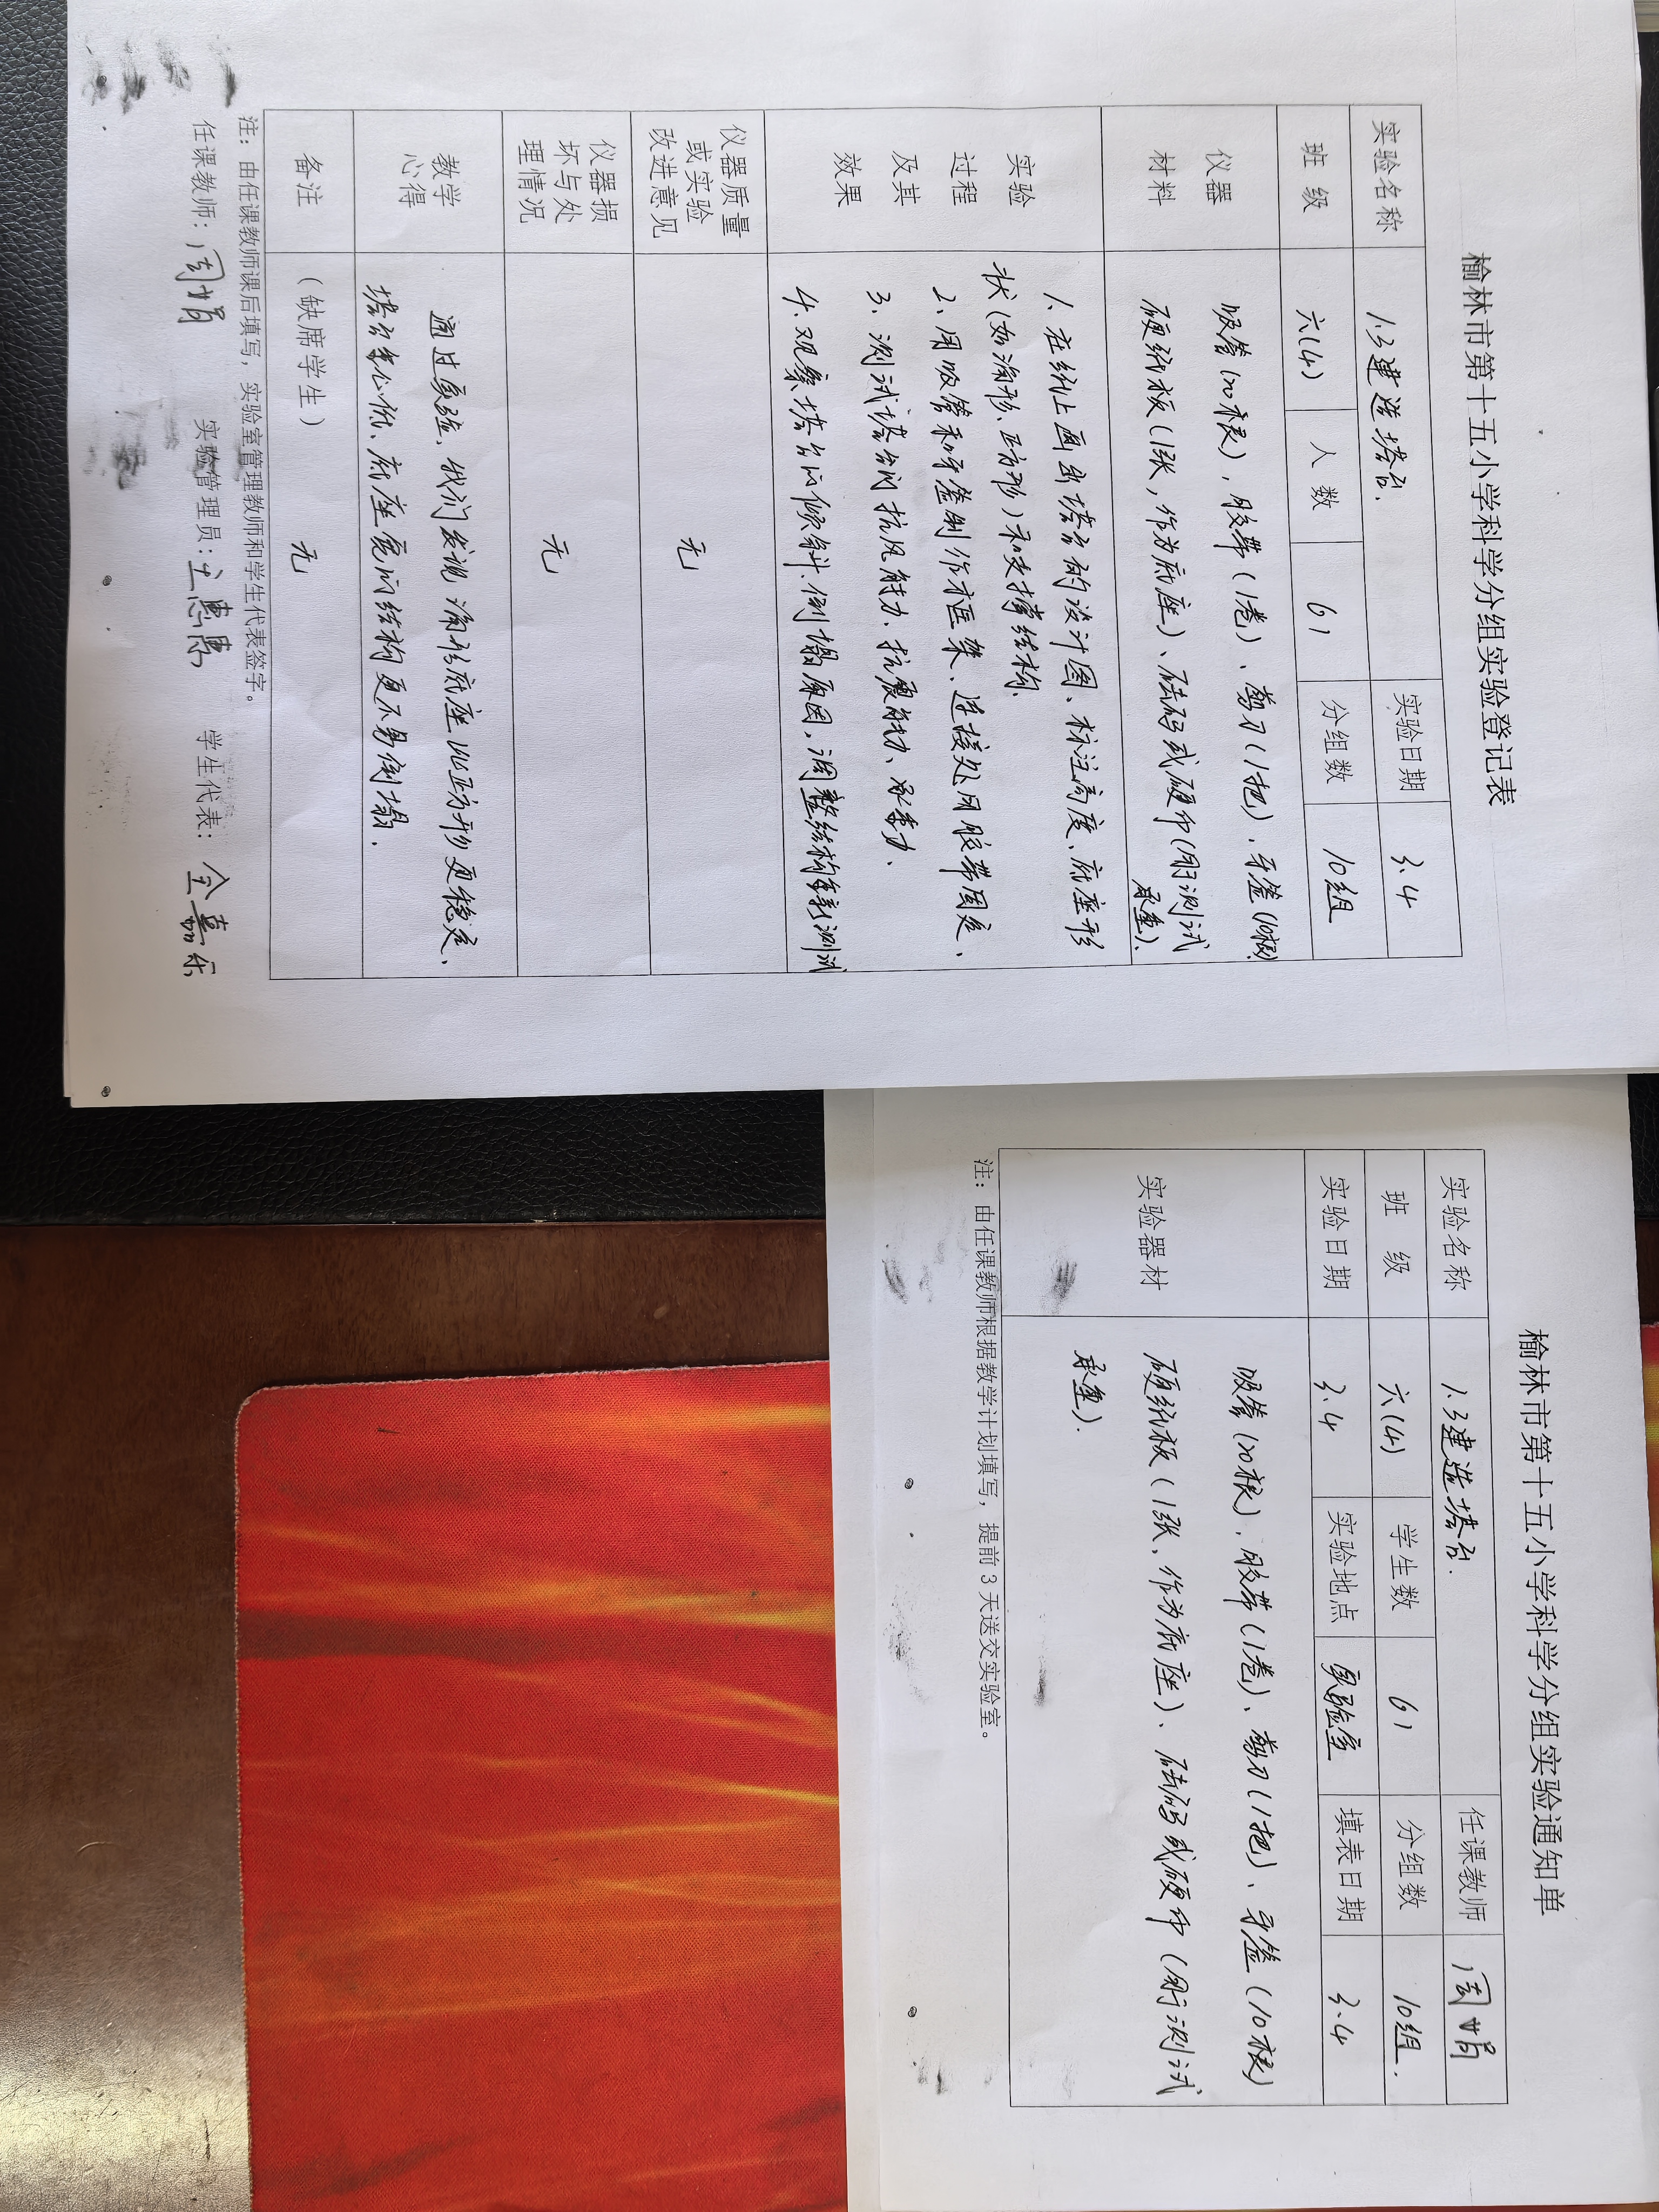 榆林市第十五小学科学分组实验登记表
实验名称 1.3建造塔台. 实验日期 3.4
班 级 六(4) 人 数 61 分组数 10组
仪器
材料
吸管(20根), 胶带(1卷)、剪刀(1把), 牙签(10根).
硬纸板(1张, 作为底座)、砝码或硬币(用于测试
承重).
实验
过程
及其
效果
1. 在纸上画出塔台的设计图、标注高度、底座形
状(如三角形、正方形)和支撑结构.
2、用吸管和牙签制作框架、连接处用胶带固定、
3、测试塔台的抗风能力、抗震能力、承重力.
4. 观察塔台的倾斜、倒塌原因, 调整结构重新测试
仪器质量
或实验
改进意见
无
仪器损
坏与处
理情况
无
教学
心得
通过实验、我们发现三角形底座比正方形更稳定、
塔台重心低、底座宽的结构更不易倒塌.
备注
(缺席学生)
无
注:由任课教师课后填写, 实验室管理教师和学生代表签字。
任课教师: 周娟 实验管理员: 学生代表: 金嘉乐
榆林市第十五小学科学分组实验通知单
实验名称 1.3建造塔台. 任课教师 周娟
班 级 六(4) 学生数 61 分组数 10组.
实验日期 3.4 实验地点 实验室 填表日期 3.4
实验器材
吸管(20根)、胶带(1卷)、剪刀(1把)、牙签(10根)
硬纸板(1张、作为底座)、砝码或硬币(用于测试
承重).
注:由任课教师根据教学计划填写, 提前 3 天送交实验室。